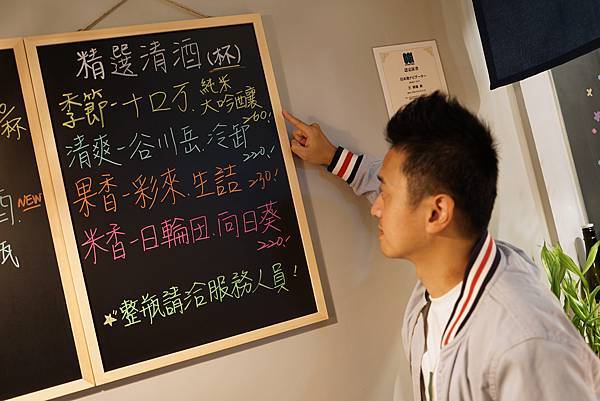 精選清酒(杯)
季節-十口万.純米大吟釀 260/.
清爽-谷川岳.冷卸 220/.
果香-彩來.生詰 230/.
米香-日輪田.向日葵 220/.
整瓶請洽服務人員!
杯
酒. NEW
瓶